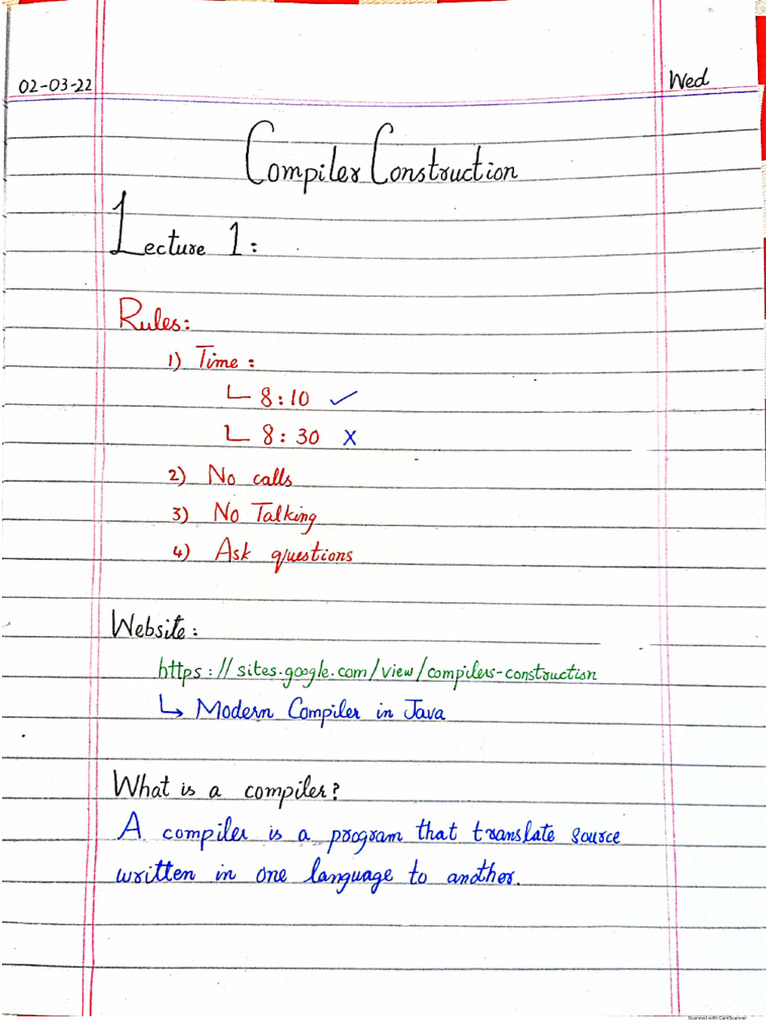 02-03-22 Wed
Compiler Construction
Lecture 1:
Rules:
1) Time:
↳ 8:10 ✓
↳ 8:30 X
2) No calls
3) No Talking
4) Ask questions
Website:
https://sites.google.com/view/compilers-construction
↳ Modern Compiler in Java
What is a compiler?
A compiler is a program that translate source
written in one language to another.
Scanned with CamScanner